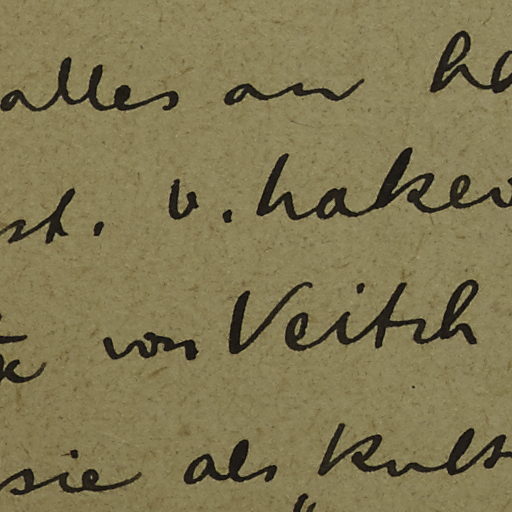 alles an
st. v. hake
von Veitch
sie als „Kult